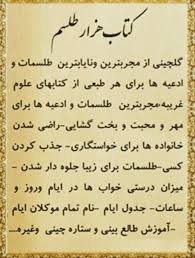 کتاب هزار طلسم
گلچینی از مجربترین ونایابترین طلسمات و
ادعیه ها برای هر طبعی از کتابهای علوم
غریبه،مجربترین طلسمات و ادعیه ها برای
مهر و محبت و بخت گشایی-راضی شدن
خانواده ها برای خواستگاری- جذب کردن
کسی-طلسمات برای زیبا جلوه دار شدن -
میزان درستی خواب ها در ایام وروز و
ساعات- جدول ایام -نام تمام موکلان ایام
-آموزش طالع بینی و ستاره چینی وغیره...